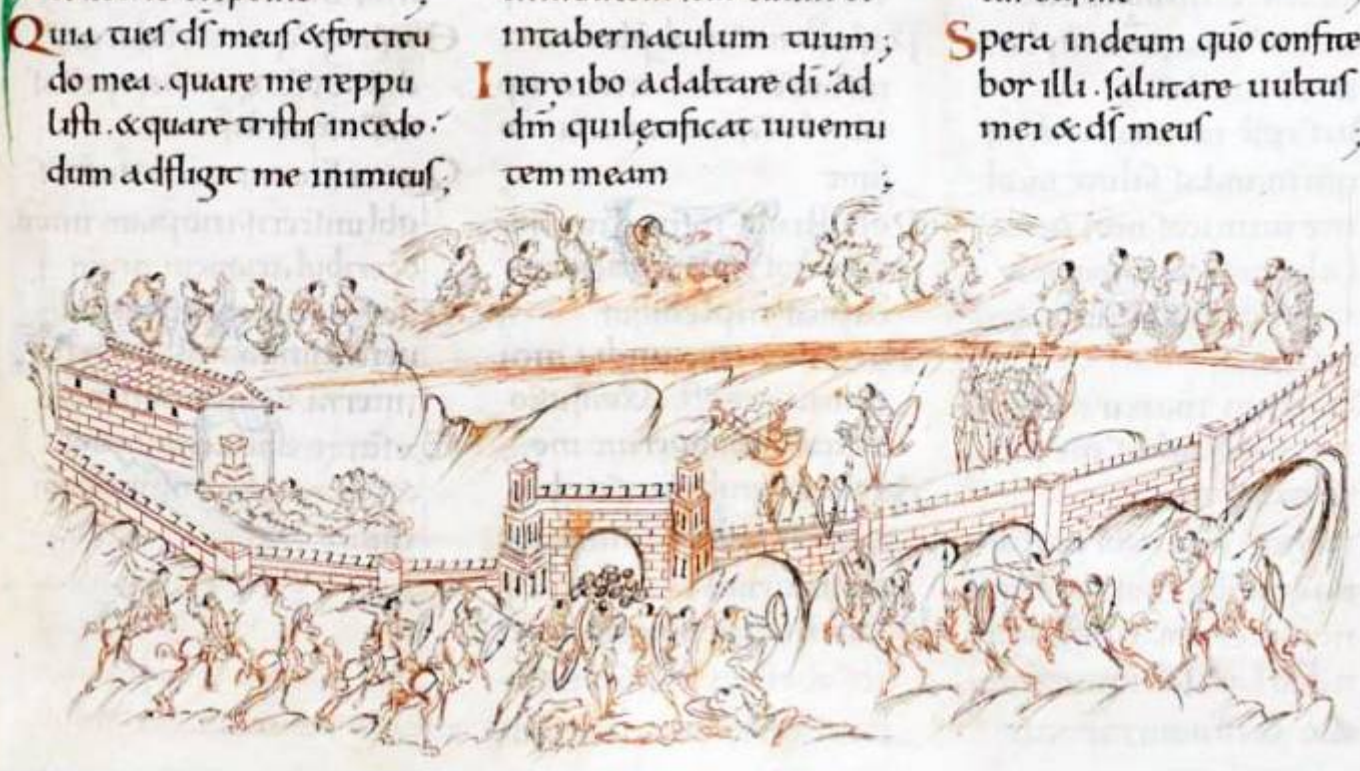 Quia tu es ds meus & fortitu
do mea. quare me reppu
listi. & quare tristis incedo.
dum adfligit me inimicus;
intabernaculum tuum;
Introibo ad altare di. ad
dm qui lętificat iuuentu
tem meam
Spera indeum quo confite
bor illi. salutare uultus
mei & ds meus